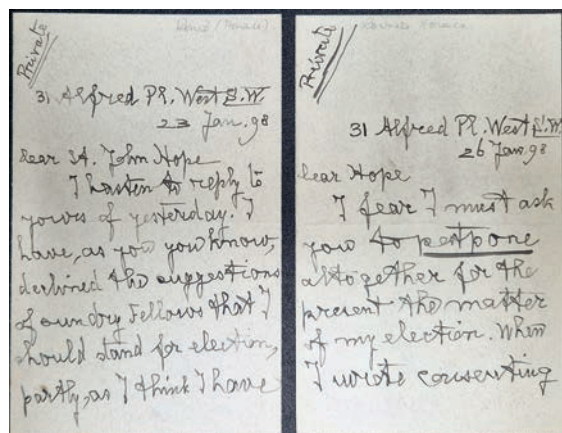 Private
31 Alfred Pl. West S.W.
23 Jan. 98
Dear St. John Hope
I hasten to reply to
yours of yesterday. I
have, as you you know,
declined the suggestions
of sundry Fellows that I
should stand for election,
partly, as I think I have
Private
31 Alfred Pl. West S.W.
26 Jan. 98
Dear Hope
I fear I must ask
you to postpone
altogether for the
present the matter
of my election. When
I wrote consenting